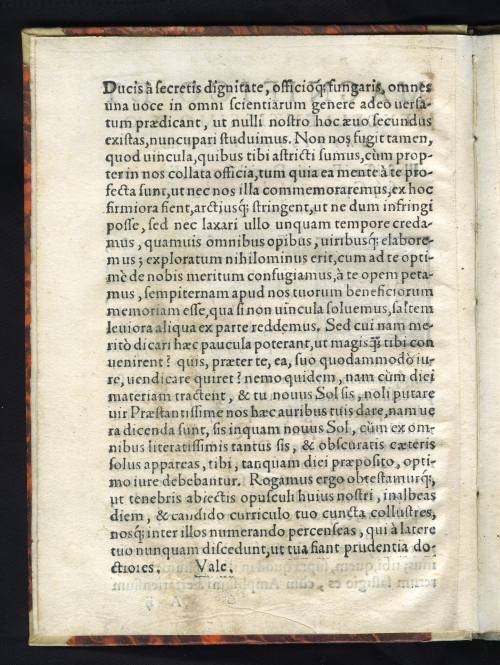 Ducis à secretis dignitate, officioq; fungaris, omnes
una uoce in omni scientiarum genere adeo uersa-
tum prædicant, ut nulli nostro hoc æuo secundus
existas, nuncupari studuimus. Non nos fugit tamen,
quod uincula, quibus tibi astricti sumus, cùm prop-
ter in nos collata officia, tum quia ea mente à te pro-
fecta sunt, ut nec nos illa commemoraremus, ex hoc
firmiora fient, arctiusq; stringent, ut ne dum infringi
posse, sed nec laxari ullo unquam tempore creda-
mus, quamuis omnibus opibus, uiribusq; elabore-
mus; exploratum nihilominus erit, cum ad te opti-
mè de nobis meritum confugiamus, à te opem peta-
mus, sempiternam apud nos tuorum beneficiorum
memoriam esse, qua si non uincula soluemus, saltem
leuiora aliqua ex parte reddemus. Sed cui nam me-
ritò dicari hæc paucula poterant, ut magis q̃; tibi con
uenirent? quis, præter te, ea, suo quodammodò iu-
re, uendicare quiret? nemo quidem, nam cùm diei
materiam tractent, & tu nouus Sol sis, noli putare
uir Præstantissime nos hæc auribus tuis dare, nam ue
ra dicenda sunt, sis inquam nouus Sol, cùm ex om-
nibus literatissimis tantus sis, & obscuratis cæteris
solus appareas, tibi, tanquam diei præposito, opti-
mo iure debebantur. Rogamus ergo obtestamurq;,
ut tenebris abiectis opusculi huius nostri, inalbeas
diem, & candido curriculo tuo cuncta collustres,
nosq; inter illos numerando percenseas, qui à latere
tuo nunquam discedunt, ut tua fiant prudentia do-
ctiores. Vale.